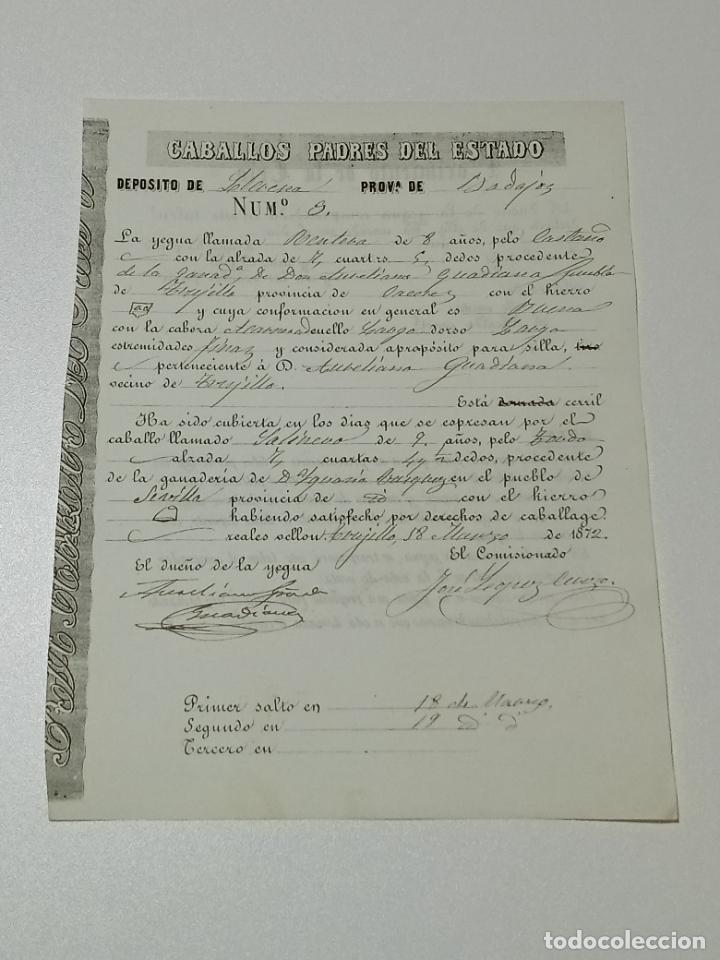 CABALLOS PADRES DEL ESTADO
DEPOSITO DE Llerena PROV.ª DE Badajoz
NUM.º 3.
La yegua llamada de 8 años, pelo Castaño
con la alzada de 7 cuart.s 5 dedos procedente
de la ganad.ª De Don Aureliano Guadiana Pueblo
de Trujillo provincia de con el hierro
y cuya conformacion en general es Buena
con la cabeza cuello Largo dorso Largo
estremidades finas y considerada apropósito para silla, tiro
perteneciente á D. Aureliano Guadiana
vecino de Trujillo.
Está domada cerril
Ha sido cubierta en los dias que se espresan por el
caballo llamado Salinero de 9 años, pelo Tordo
alzada 7 cuartas 4 y ½ dedos, procedente
de la ganadería de D. Ygnacio Vazquez en el pueblo de
Sevilla provincia de id con el hierro
habiendo satisfecho por derechos de caballage
reales vellon. Trujillo, 18 Marzo de 1872.
El dueño de la yegua El Comisionado
Aureliano Guadiana José Lopez
Primer salto en 18 de Marzo.
Segundo en 19 id id
Tercero en
todocoleccion
todocoleccion.net